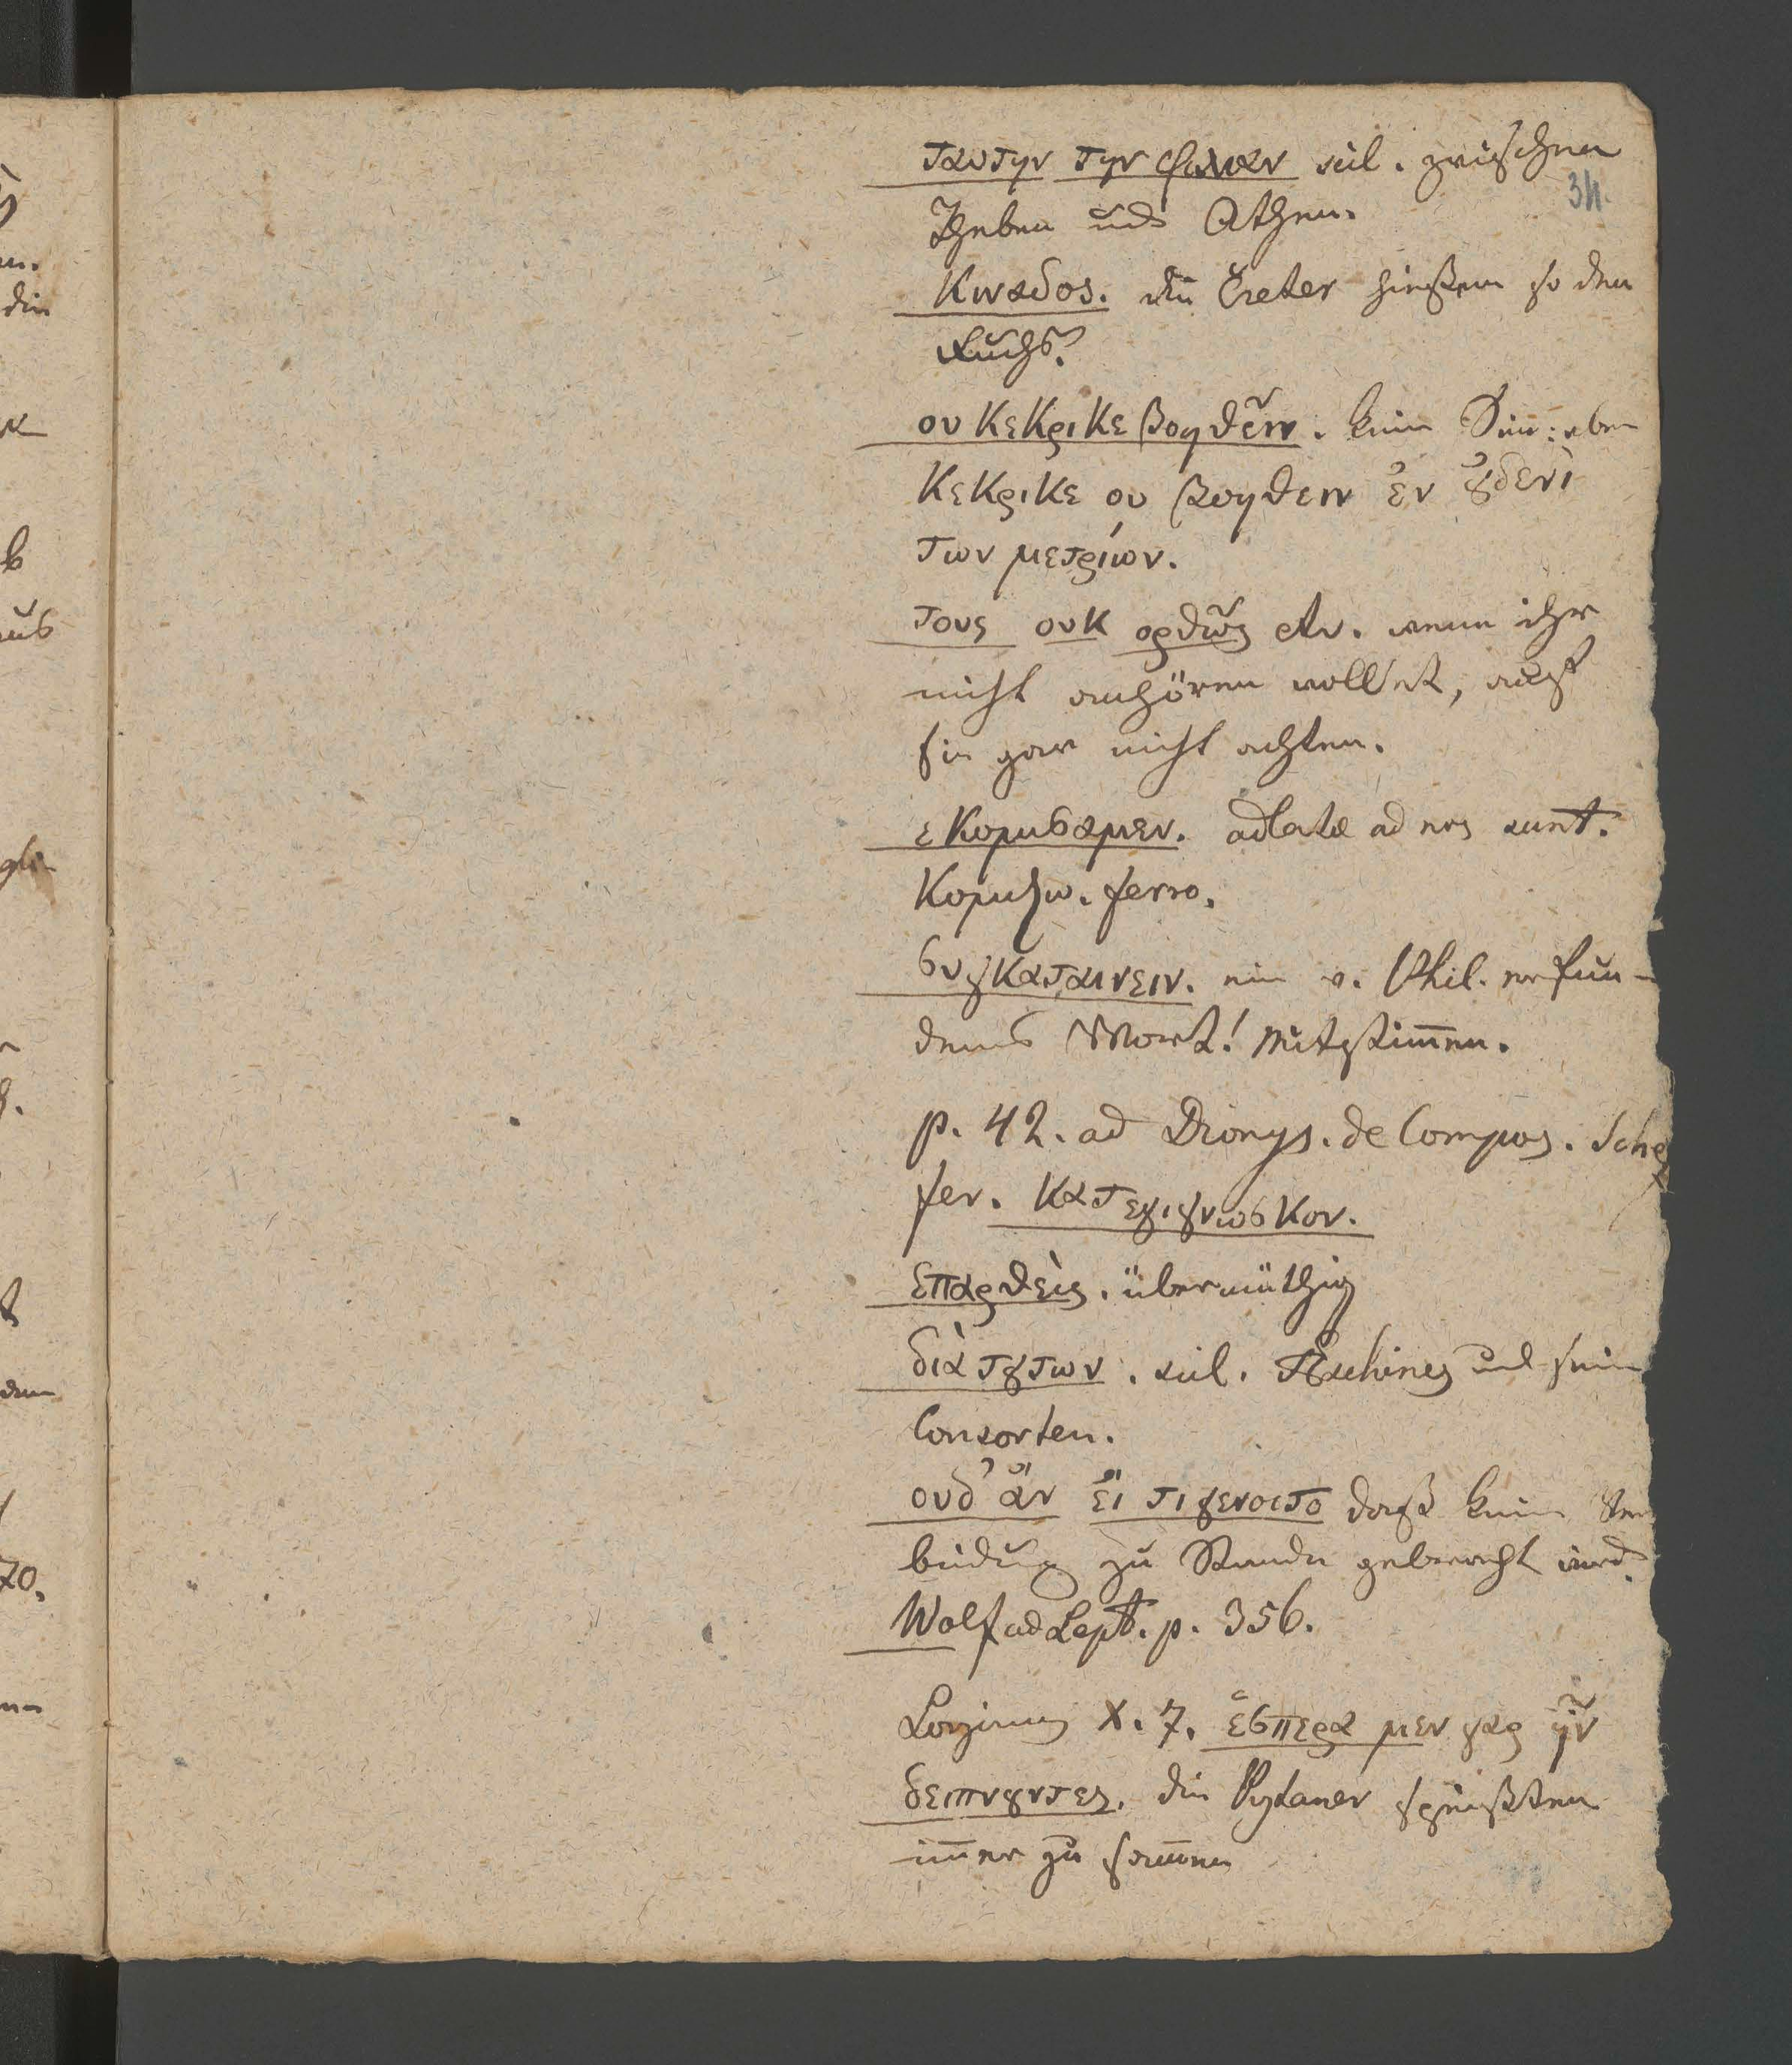 ταυτην την φιλιαν scil. zwischen
34.
Theben und Athen.
Κιναδος. die Creter hießen so den
Fuchs.
ου κεκρικε βοηθεῖν. kein Sinn: eben
κεκρικε ου βοηθειν ἐν ȣ̓δενι
των μετρίων.
τους ουκ ορθῶς etc. wenn ihr
nicht anhören wolltet, auf
sie gar nicht achten.
εκομισαμεν. adlatae ad nos sunt.
κομιζω. fero.
συγκαταινειν. ein v. Phil. erfun-
denes Wort! mitstim̄en.
p. 42. ad Dionys. de Compos. Schæ
fer. κατεγιγνωσκον.
επαρθεὶς. übermüthig
διὰ τȣτων. scil. Æschines und seine
Consorten.
ουδ' ἂν εἴ τι γενοιτο daß keine Ver
bindung zu Stande gebracht wird.
Wolf ad Lept. p. 356.
Longinus X. 7. ἑσπερα μεν γαρ ἦν
δειπνȣντες. die Prytaner speißten
im̄er zusam̄en